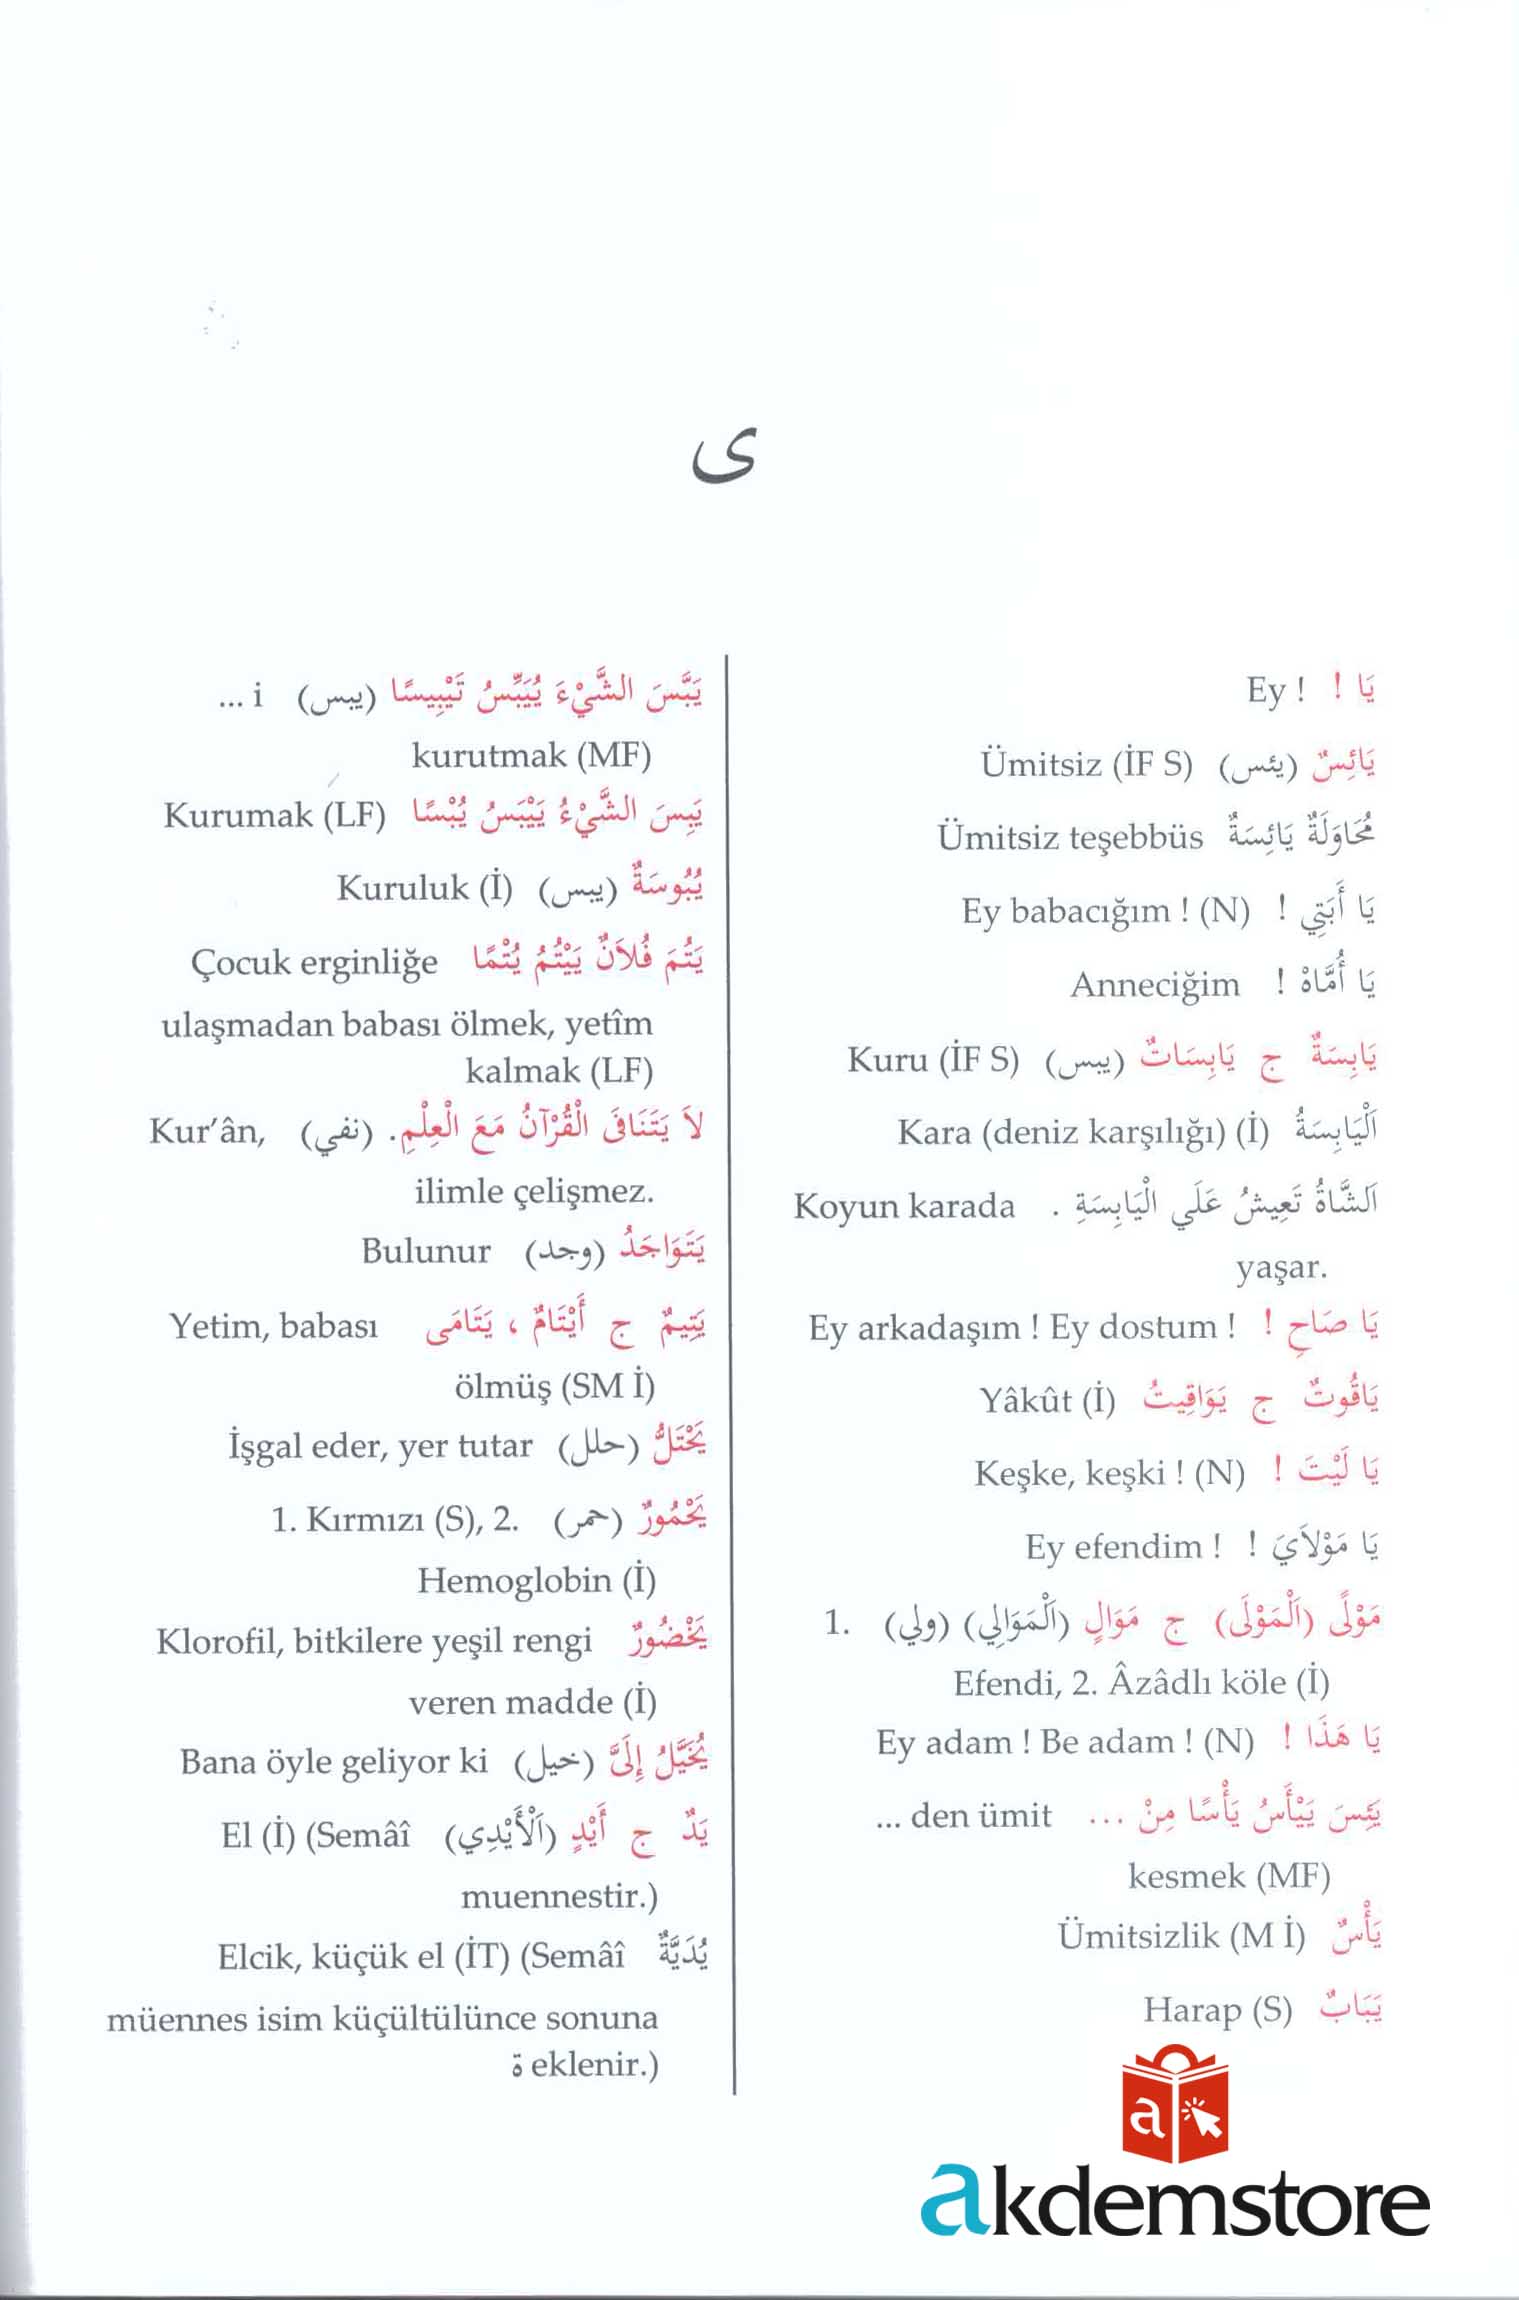 ى
يَا ! Ey !
يَائِسٌ (يئس) Ümitsiz (İF S)
مُحَاوَلَةٌ يَائِسَةٌ Ümitsiz teşebbüs
يَا أَبَتِي ! Ey babacığım ! (N)
يَا أُمَّاهْ ! Anneciğim
يَابِسَةٌ ج يَابِسَاتٌ (يبس) Kuru (İF S)
اَلْيَابِسَةُ Kara (deniz karşılığı) (İ)
اَلشَّاةُ تَعِيشُ عَلَي الْيَابِسَةِ . Koyun karada
yaşar.
يَا صَاحِ ! Ey arkadaşım ! Ey dostum !
يَاقُوتٌ ج يَوَاقِيتُ Yâkût (İ)
يَا لَيْتَ ! Keşke, keşki ! (N)
يَا مَوْلاَيَ ! Ey efendim !
مَوْلًى (اَلْمَوْلَى) ج مَوَالٍ (اَلْمَوَالِي) (ولي) 1.
Efendi, 2. Âzâdlı köle (İ)
يَا هَذَا ! Ey adam ! Be adam ! (N)
يَئِسَ يَيْأَسُ يَأْسًا مِنْ ... ... den ümit
kesmek (MF)
يَأْسٌ Ümitsizlik (M İ)
يَبَابٌ Harap (S)
يَبَّسَ الشَّيْءَ يُيَبِّسُ تَيْبِيسًا (يبس) ... i
kurutmak (MF)
يَبِسَ الشَّيْءُ يَيْبَسُ يُبْسًا Kurumak (LF)
يُبُوسَةٌ (يبس) Kuruluk (İ)
يَتُمَ فُلاَنٌ يَيْتُمُ يُتْمًا Çocuk erginliğe
ulaşmadan babası ölmek, yetîm
kalmak (LF)
لاَ يَتَنَافَى الْقُرْآنُ مَعَ الْعِلْمِ. (نفي) Kur’ân,
ilimle çelişmez.
يَتَوَاجَدُ (وجد) Bulunur
يَتِيمٌ ج أَيْتَامٌ ، يَتَامَى Yetim, babası
ölmüş (SM İ)
يَحْتَلُّ (حلل) İşgal eder, yer tutar
يَحْمُورٌ (حمر) 1. Kırmızı (S), 2.
Hemoglobin (İ)
يَخْضُورٌ Klorofil, bitkilere yeşil rengi
veren madde (İ)
يُخَيَّلُ إِلَيَّ (خيل) Bana öyle geliyor ki
يَدٌ ج أَيْدٍ (اَلْأَيْدِي) El (İ) (Semâî
muennestir.)
يُدَيَّةٌ Elcik, küçük el (İT) (Semâî
müennes isim küçültülünce sonuna
ة eklenir.)
a
akdemstore